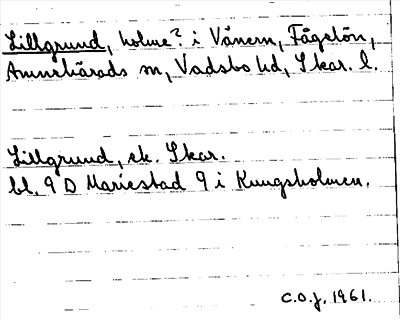 Lillgrund, holme? i Vänern, Fågelön,
Amnehärads sn, Vadsbo hd, Skar. l.
Lillgrund, ek. Skar.
bl. 9 D Mariestad 9 i Kungsholmen.
C.O.J. 1961.